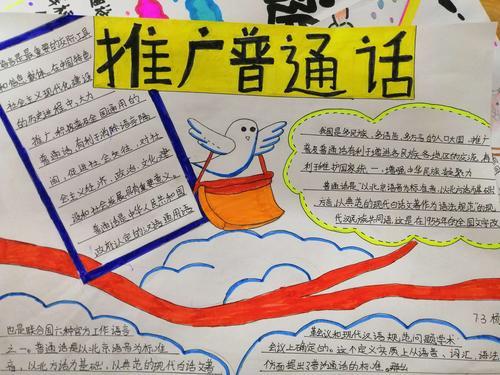 推广普通话
语言是最重要的交际工具
和信息载体。在中国特色
社会主义现代化建设
的历史进程中，大力
推广积极普及全国通用的
普通话有利于消除语言隔
阂，促进社会交往，对社
会主义经济、政治、文化建
设和社会发展具有重要意义。
普通话是中华人民共和国
政府认定的汉语通用语
我国是多民族、多语言、多方言的人口大国，推广
普及普通话有利于增进各民族各地区的交流，有
利于维护国家统一，增强中华民族凝聚力
普通话是"以北京语音为标准音，以北方话为基础
方言，以典范的现代白话文著作为语法规范"的现
代汉民族共同语，这是在1955年的全国文字改
也是联合国六种官方工作语言
之一。普通话是以北京语音为标准
音，以北方话为基础，以典范的现代白话文著
革会议和现代汉语规范问题学术
会议上确定的。这个定义实质上从语音、词汇、语法
方面提出了普通话的标准。
73